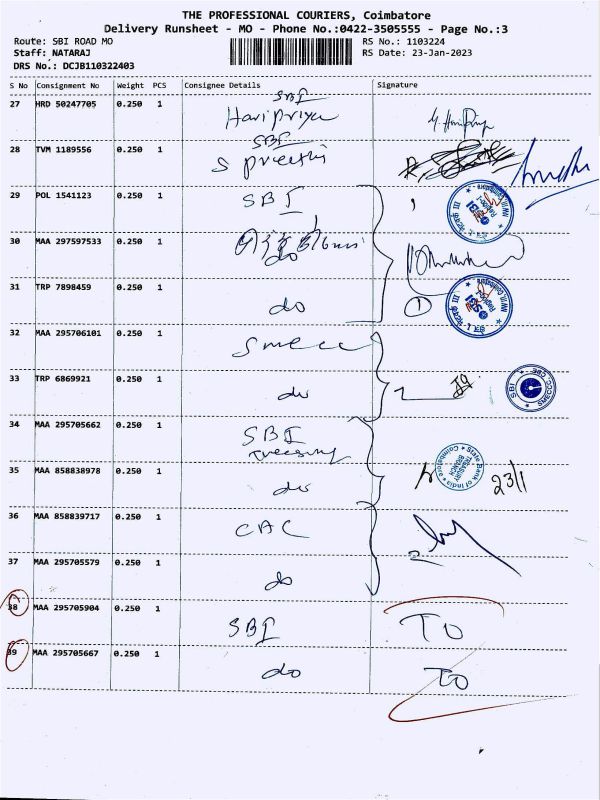 THE PROFESSIONAL COURIERS, Coimbatore
Delivery Runsheet - MO - Phone No.:0422-3505555 - Page No.:3
Route: SBI ROAD MO RS No.: 1103224
Staff: NATARAJ RS Date: 23-Jan-2023
DRS No.: DCJB110322403
S No Consignment No Weight PCS Consignee Details Signature
SBI
27 HRD 50247705 0.250 1 Haripriya
SBI
28 TVM 1189556 0.250 1 S preethi
29 POL 1541123 0.250 1 SBI
30 MAA 297597533 0.250 1 do
31 TRP 7898459 0.250 1 do 1
32 MAA 295706101 0.250 1 Smecc
33 TRP 6869921 0.250 1 do
34 MAA 295705662 0.250 1 SBI
Treasury
State Bank of India
TREASURY
BRANCH
Coimbatore
35 MAA 858838978 0.250 1 do 23/1
36 MAA 858839717 0.250 1 CAC
37 MAA 295705579 0.250 1 do
38 MAA 295705904 0.250 1 SBI TO
39 MAA 295705667 0.250 1 do TO